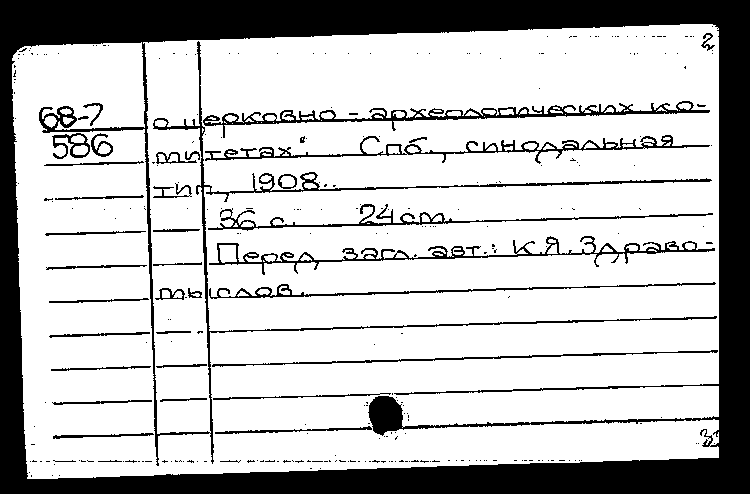 2
68-7 о церковно-археологических ко-
586 митетах". Спб., синодальная
тип., 1908.
36 с. 24 cm.
Перед загл. авт.: К.Я. Здраво-
мыслов.